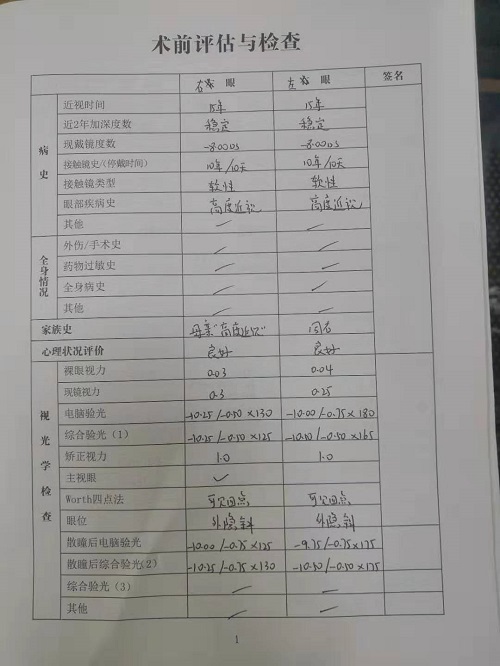 术前评估与检查
右 眼 左 眼 签名
病史
近视时间 15年 15年
近2年加深度数 稳定 稳定
现戴镜度数 -8.00DS -8.00DS
接触镜史/(停戴时间) 10年/10天 10年/10天
接触镜类型 软性 软性
眼部疾病史 高度近视 高度近视
其他
全身情况
外伤/手术史
药物过敏史
全身病史
其他
家族史 母亲"高度近视" 同右
心理状况评价 良好 良好
视光学检查
裸眼视力 0.03 0.04
现镜视力 0.3 0.25
电脑验光 -10.25/-0.50×130 -10.00/-0.75×180
综合验光(1) -10.25/-0.50×125 -10.50/-0.50×165
矫正视力 1.0 1.0
主视眼 ✓
Worth四点法 可见四点 可见四点
眼位 外隐斜 外隐斜
散瞳后电脑验光 -10.00/-0.75×125 -9.75/-0.75×175
散瞳后综合验光(2) -10.25/-0.75×130 -10.50/-0.50×175
综合验光(3)
其他
1